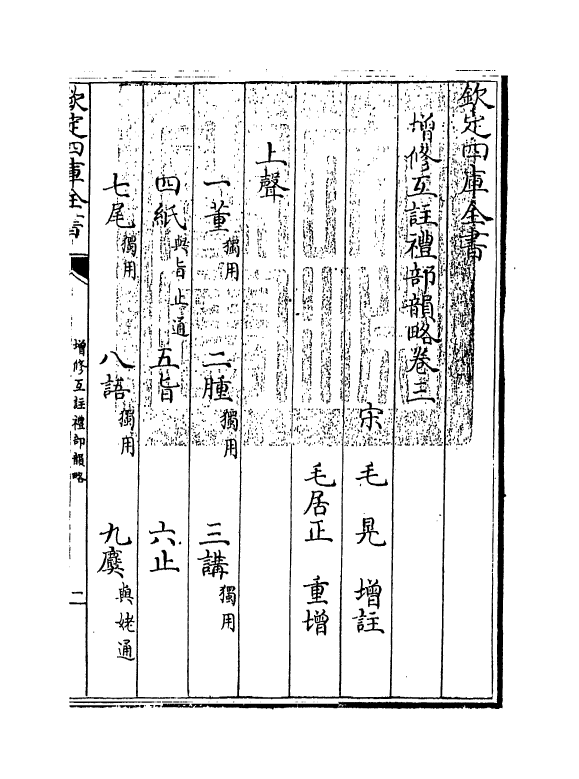 欽定四庫全書
增修互註禮部韻略卷三
宋 毛晃 增註
毛居正 重增
上聲
一董獨用 二腫獨用 三講獨用
四紙與旨止通 五旨 六止
七尾獨用 八語獨用 九麌與姥通
欽定四庫全書 增修互註禮部韻略 二